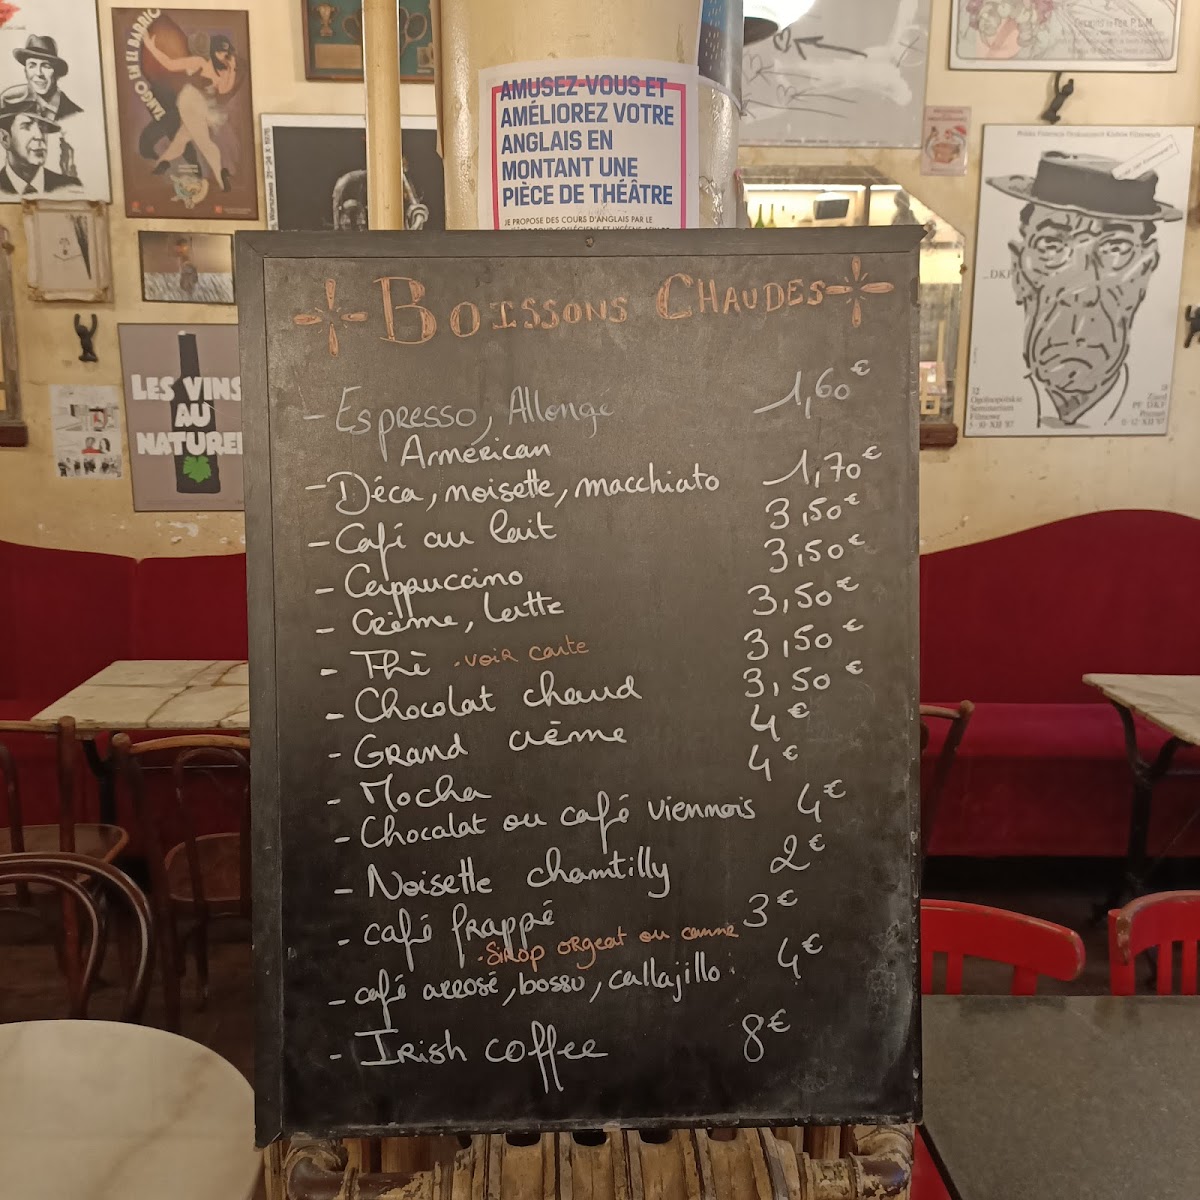 AMUSEZ-VOUS ET
AMÉLIOREZ VOTRE
ANGLAIS EN
MONTANT UNE
PIÈCE DE THÉÂTRE
JE PROPOSE DES COURS D'ANGLAIS PAR LE
TANGO EN EL BARRIO
LES VINS
AU
NATUREL
...DKF
12
Ogólnopolskie
Seminarium
Filmowe
5-10-XII'87
BOISSONS CHAUDES
- Espresso, Allongé 1,60€
Américan
- Déca, noisette, macchiato 1,70€
- Café au lait 3,50€
- Cappuccino 3,50€
- Crème, latte 3,50€
- Thè - voir carte 3,50€
- Chocolat chaud 3,50€
- Grand crème 4€
- Mocha 4€
- Chocolat ou café viennois 4€
- Noisette chantilly 2€
- café frappé 3€
- Sirop orgeat ou canne
- café arrosé, bossu, callajillo 4€
- Irish coffee 8€